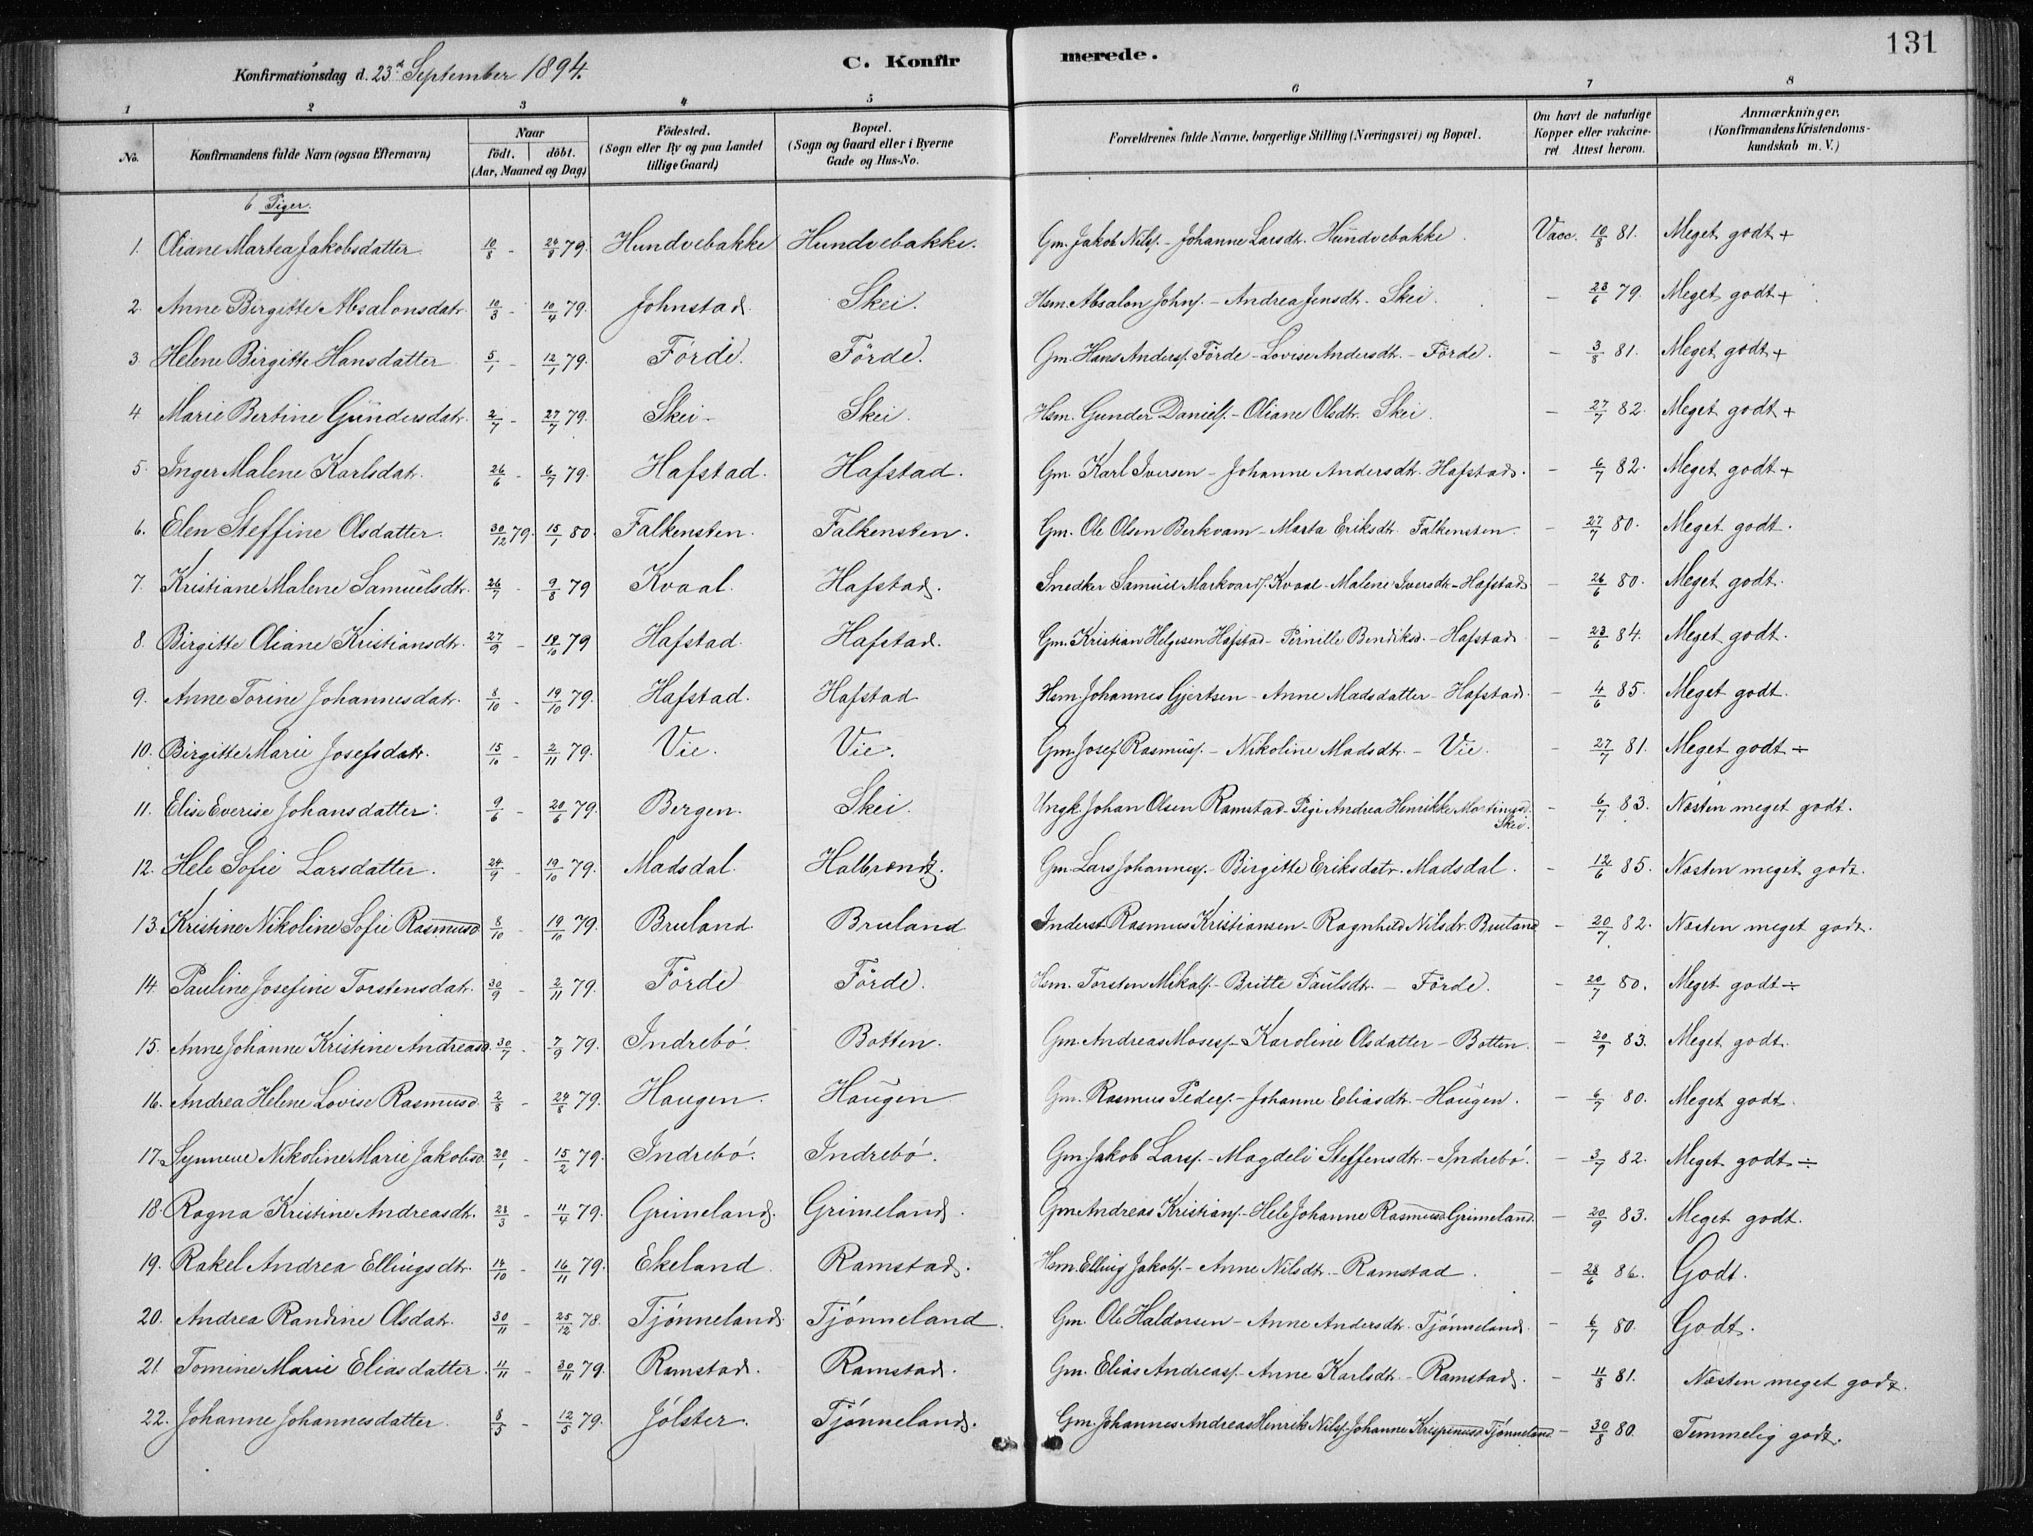 131
Konfirmationsdag d. 23d September 1894. C. Konfirmerede.
1 2 3 4 5 6 7 8
No. Konfirmandens fulde Navn (ogsaa Efternavn) Naar født. døbt. (Aar, Maaned og Dag) Fødested. (Sogn eller By og paa Landet tillige Gaard) Bopæl. (Sogn og Gaard eller i Byerne Gade og Hus-No. Forældrenes fulde Navne, borgerlige Stilling (Næringsvei) og Bopæl. Om havt de naturlige Kopper eller vakcineret Attest herom. Anmærkninger. (Konfirmandens Kristendomskundskab m. V.)
Piger.
1. Oliane Martea Jakobsdatter 10/8 - 24/8 79. Hundvebakke Hundvebakke. Gm. Jakob Nilss. - Johanne Larsdt. Hundvebakke. Vacc. 10/8 81. Meget godt +
2. Anne Birgitte Absalonsdatr. 10/3 - 10/4 79. Johnstad. Skei. Hsm. Absalon Johns. - Andrea Jensdt. Skei. - 23/6 79. Meget godt +
3 Helene Birgitte Hansdatter 5/1 - 12/1 79. Förde. Förde. Gm. Hans Anderss. Förde - Lovise Andersdt. - Förde. - 3/8 81. Meget godt +
4 Marie Bertine Gundersdatr. 2/7 - 27/7 79. Skei - Skei. Hsm. Gunder Daniels. - Oliane Olsdtr. Skei. - 27/7 82. Meget godt +
5. Inger Malene Karlsdatr. 26/6 - 6/7 79. Hafstad. Hafstad. Gm. Karl Iversen - Johanne Andersdtr. Hafstad. - 6/7 82. Meget godt +
6. Elen Steffine Olsdatter. 30/12 79. 15/1 80. Falkensten. Falkensten. Gm. Ole Olsen Berkvam - Marta Eriksdtr. Falkensten. - 27/7 80. Meget godt.
7. Kristiane Malene Samuelsdtr. 26/7 - 9/8 79 Kvaal. Hafstad. Snedker Samuel Markvards. Kvaal - Malene Iversdtr. - Hafstad - 26/6 80. Meget godt.
8. Birgitte Oliane Kristiansdtr. 27/9 - 19/10 79 Hafstad. Hafstad. Gm. Kristian Helgesen Hafstad - Pernille Bendiksd. - Hafstad - 23/6 84. Meget godt.
9. Anne Torine Johannesdatr. 8/10 - 19/10 79. Hafstad. Hafstad Hsm. Johannes Gjertsen - Anne Madsdatter - Hafstad. - 4/6 85. Meget godt.
10. Birgitte Marie Josefsdatr. 15/10 - 2/11 79. Vie. Vie. Gm. Josef Rasmuss. - Nikoline Madsdtr. - Vie. - 27/7 81. Meget godt ÷
11. Elise Everise Johansdatter. 9/6 - 20/6 79. Bergen. Skei. Ungk. Johan Olsen Ramstad - Pige Andrea Henrikke Martinusd. Skei. - 6/7 83. Næsten meget godt.
12. Hele Sofie Larsdatter. 24/9 - 19/10 79. Madsdal. Halbrendt. Gm. Lars Johanness. - Birgitte Eriksdatr. Madsdal. - 12/6 85. Næsten meget godt.
13. Kristine Nikoline Sofie Rasmusd. 8/10 - 19/10 79. Bruland. Bruland Inderst Rasmus Kristiansen - Ragnhild Nilsdtr. Bruland - 20/7 82. Næsten meget godt.
14. Pauline Josefine Torstensdatr. 30/9 - 2/11 79. Förde Förde. Hsm. Torsten Mikals. - Britte Paulsdtr. - Förde. - 20/7 80. Meget godt ÷
15. Anne Johanne Kristine Andreasd. 30/7 - 7/9 79. Indrebö. Botten. Gm. Andreas Moses. - Karoline Olsdatter - Botten. - 20/9 83. Meget godt.
16. Andrea Helene Lovise Rasmusd. 2/8 - 24/8 79. Haugen. Haugen Gm. Rasmus Peders. - Johanne Eliasdtr. - Haugen. - 6/7 80. Meget godt.
17. Synneve Nikoline Marie Jakobsd. 20/1 - 15/2 79. Indrebö. Indrebö. Gm. Jakob Larss. - Magdeli Steffensdtr. - Indrebö. - 3/7 82. Meget godt ÷
18. Ragna Kristine Andreasdt. 23/3 - 11/4 79. Grimeland. Grimeland. Gm. Andreas Kristians. - Hele Johanne Rasmusd. Grimeland. - 20/9 83. Meget godt.
19. Rakel Andrea Ellingsdtr. 14/10 - 16/11 79. Ekeland. Ramstad. Hsm. Elling Jakobs. - Anne Nilsdtr. - Ramstad. - 28/6 86. Godt.
20. Andrea Randine Olsdatr. 30/11 - 25/12 78. Tjønneland. Tjønneland. Gm. Ole Haldorsen - Anne Andersdtr. Tjønneland. - 6/7 80. Godt.
21. Tomine Marie Eliasdatter. 11/11 - 30/11 79. Ramstad. Ramstad. Gm. Elias Andreass. - Anne Karlsdtr - Ramstad. - 11/8 81. Næsten meget godt.
22. Johanne Johannesdatter. 8/5 - 12/5 79. Jølster. Tjønneland. Gm. Johannes Andreas Henrik Nilss. Johanne Krispinusd. Tjønneland. - 30/8 80. Temmelig godt.